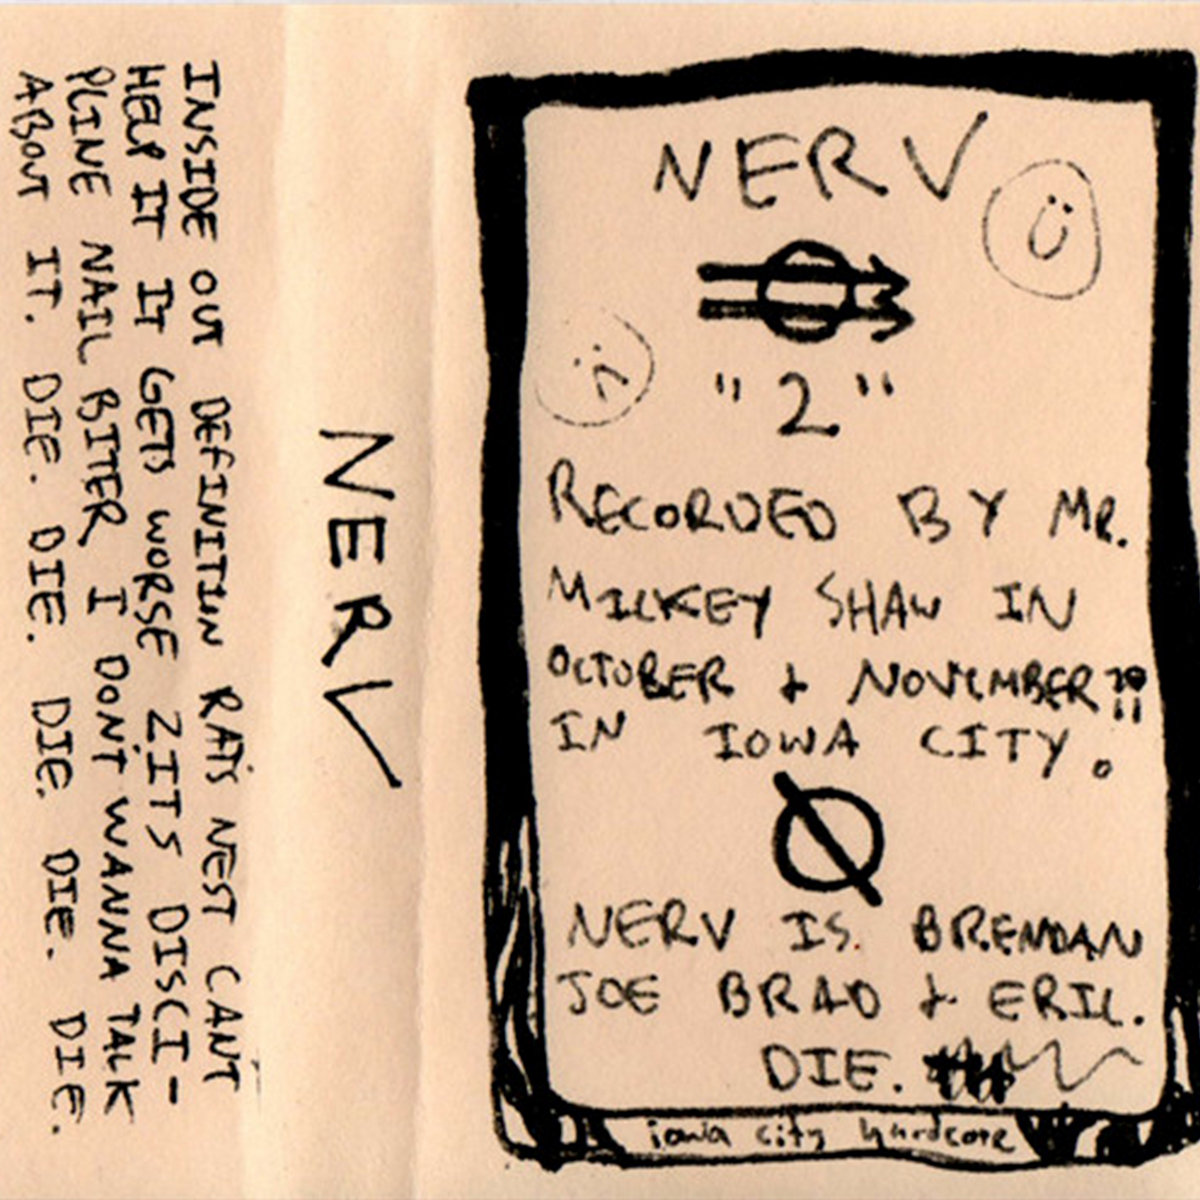 INSIDE OUT DEFINITION RATS NEST CANT
HELP IT IT GETS WORSE ZITS DISCI-
PLINE NAIL BITER I DONT WANNA TALK
ABOUT IT. DIE. DIE. DIE. DIE. DIE.
NERV
NERV
"2"
RECORDED BY MR.
MICKEY SHAW IN
OCTOBER + NOVEMBER??
IN IOWA CITY.
NERV IS. BRENDAN
JOE BRAD + ERIC.
DIE.
iowa city hardcore